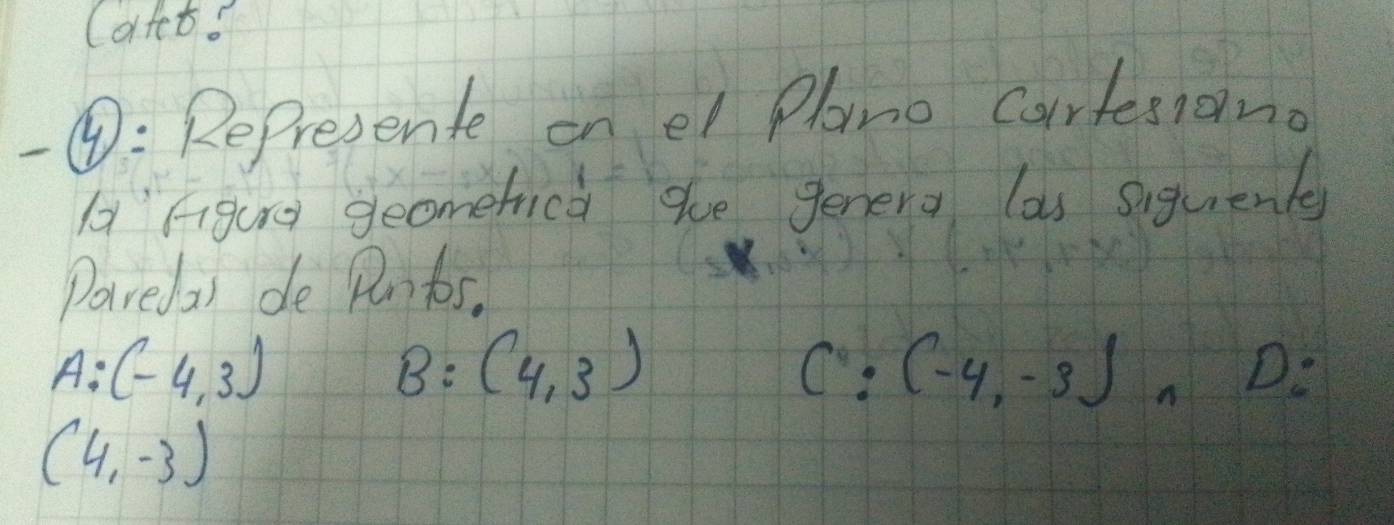 Catet?
- ④: Represente en el Plano Cartesiano
la figura geometrica que genera las siguientes
Parejas de Puntos.
A:(-4,3) B:(4,3) C:(-4,-3) ∧ D:
(4,-3)